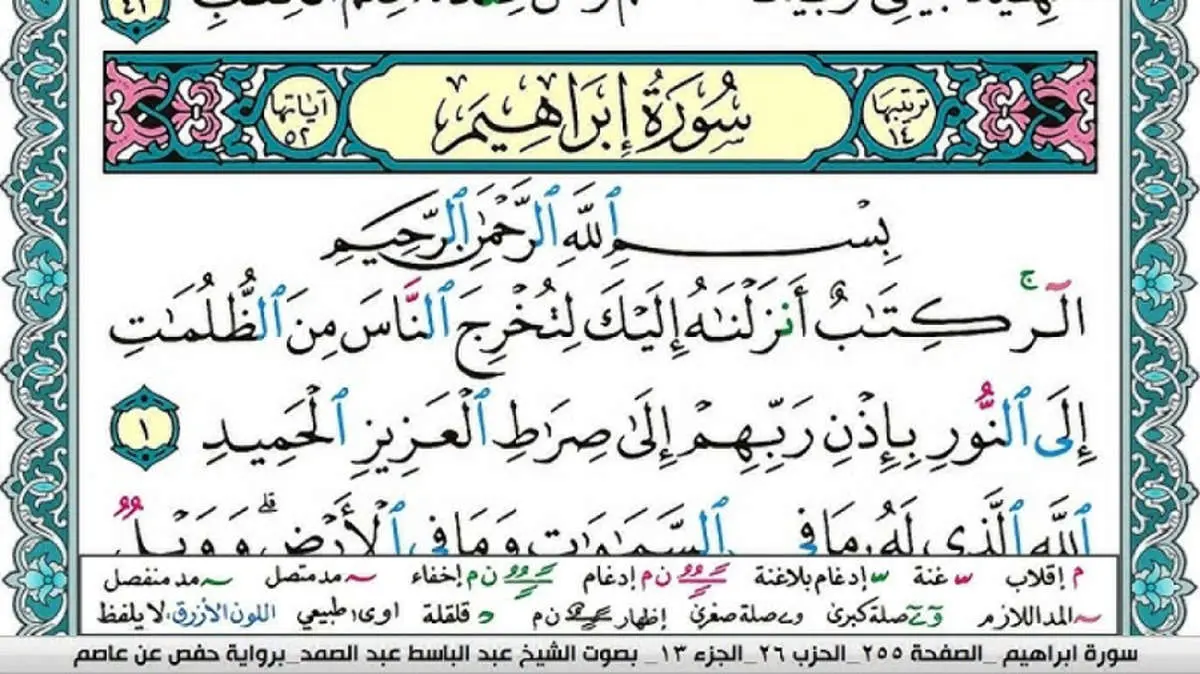 ٤٣
سُورَةُ إِبْرَاهِيمَ
ترتيبها ١٤
آياتها ٥٢
بِسْمِ ٱللَّهِ ٱلرَّحْمَٰنِ ٱلرَّحِيمِ
الٓر كِتَٰبٌ أَنزَلْنَٰهُ إِلَيْكَ لِتُخْرِجَ ٱلنَّاسَ مِنَ ٱلظُّلُمَٰتِ
إِلَى ٱلنُّورِ بِإِذْنِ رَبِّهِمْ إِلَىٰ صِرَٰطِ ٱلْعَزِيزِ ٱلْحَمِيدِ ١
ٱللَّهِ ٱلَّذِى لَهُۥ مَا فِى ٱلسَّمَٰوَٰتِ وَمَا فِى ٱلْأَرْضِ ۗ وَوَيْلٌ
م إقلاب غنة إدغام بلاغنة ن م إدغام ن م إخفاء مد متصل مد منفصل
المد اللازم صلة كبرى صلة صغرى إظهار ن م قلقلة اوى، طبيعي اللون الأزرق، لا يلفظ
سورة ابراهيم _الصفحة ٢٥٥_ الحزب ٢٦_ الجزء ١٣_ بصوت الشيخ عبد الباسط عبد الصمد_برواية حفص عن عاصم